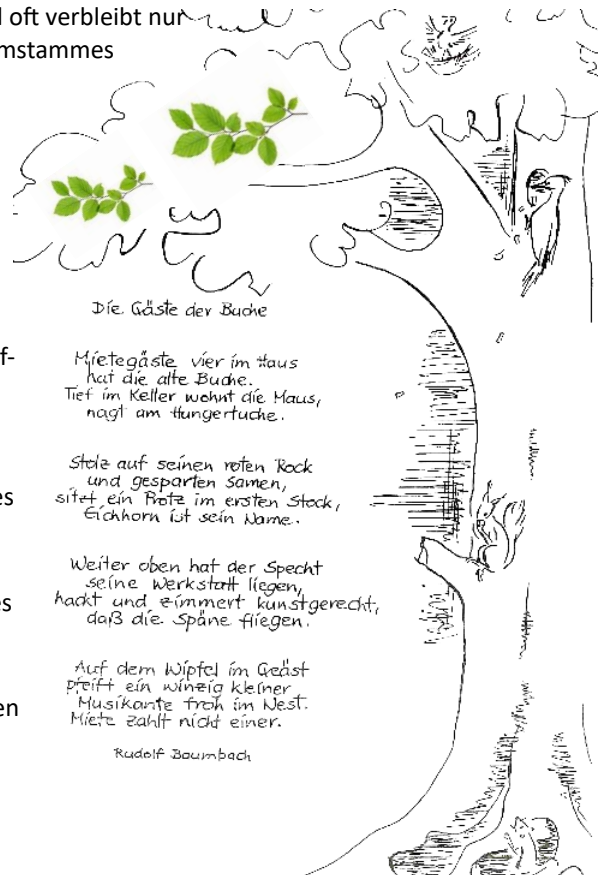 l oft verbleibt nur
mstammes
Die Gäste der Buche
f-
Mietegäste vier im Haus
hat die alte Buche.
Tief im Keller wohnt die Maus,
nagt am Hungertuche.
Stolz auf seinen roten Rock
und gesparten Samen,
es
sitzt ein Protz im ersten Stock,
Eichhorn ist sein Name.
Weiter oben hat der Specht
seine Werkstatt liegen,
es
hackt und zimmert kunstgerecht,
daß die Späne fliegen.
Auf dem Wipfel im Geäst
pfeift ein winzig kleiner
en
Musikante froh im Nest.
Miete zahlt nicht einer.
Rudolf Baumbach